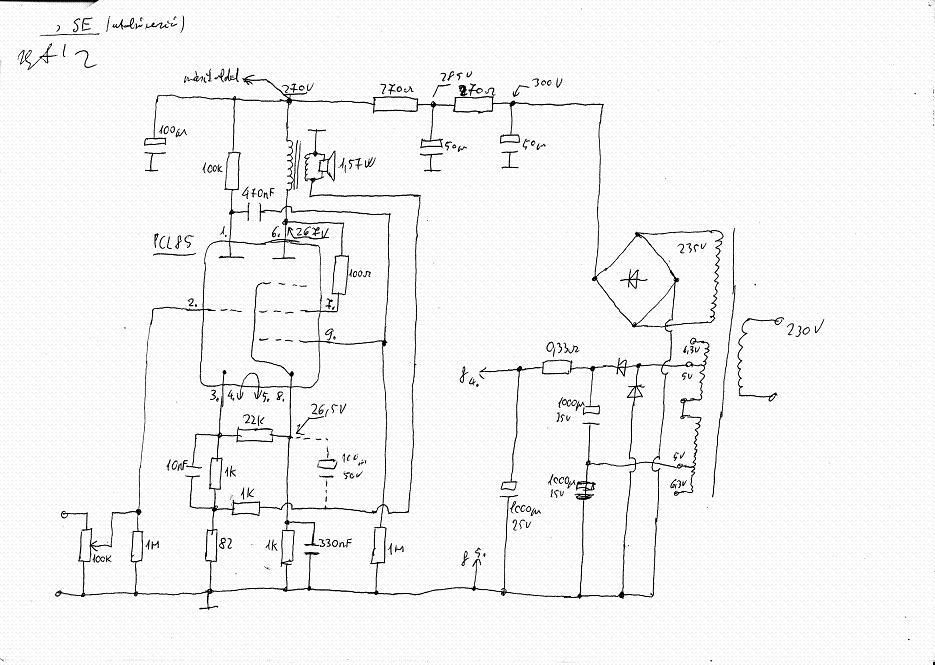 , SE
270V
285V
300V
270Ω
270Ω
100µ
50µ
50µ
100k
1,57W
470nF
PCL85
1.
6.
267V
100Ω
2.
7.
9.
3.
4.
5.
8.
26,5V
22k
10nF
1k
1k
50V
100k
1M
82
1k
330nF
1M
235V
230V
0,33Ω
6,3V
5V
f 4.
1000µ
25V
1000µ
25V
5V
6,3V
1000µ
25V
f 5.